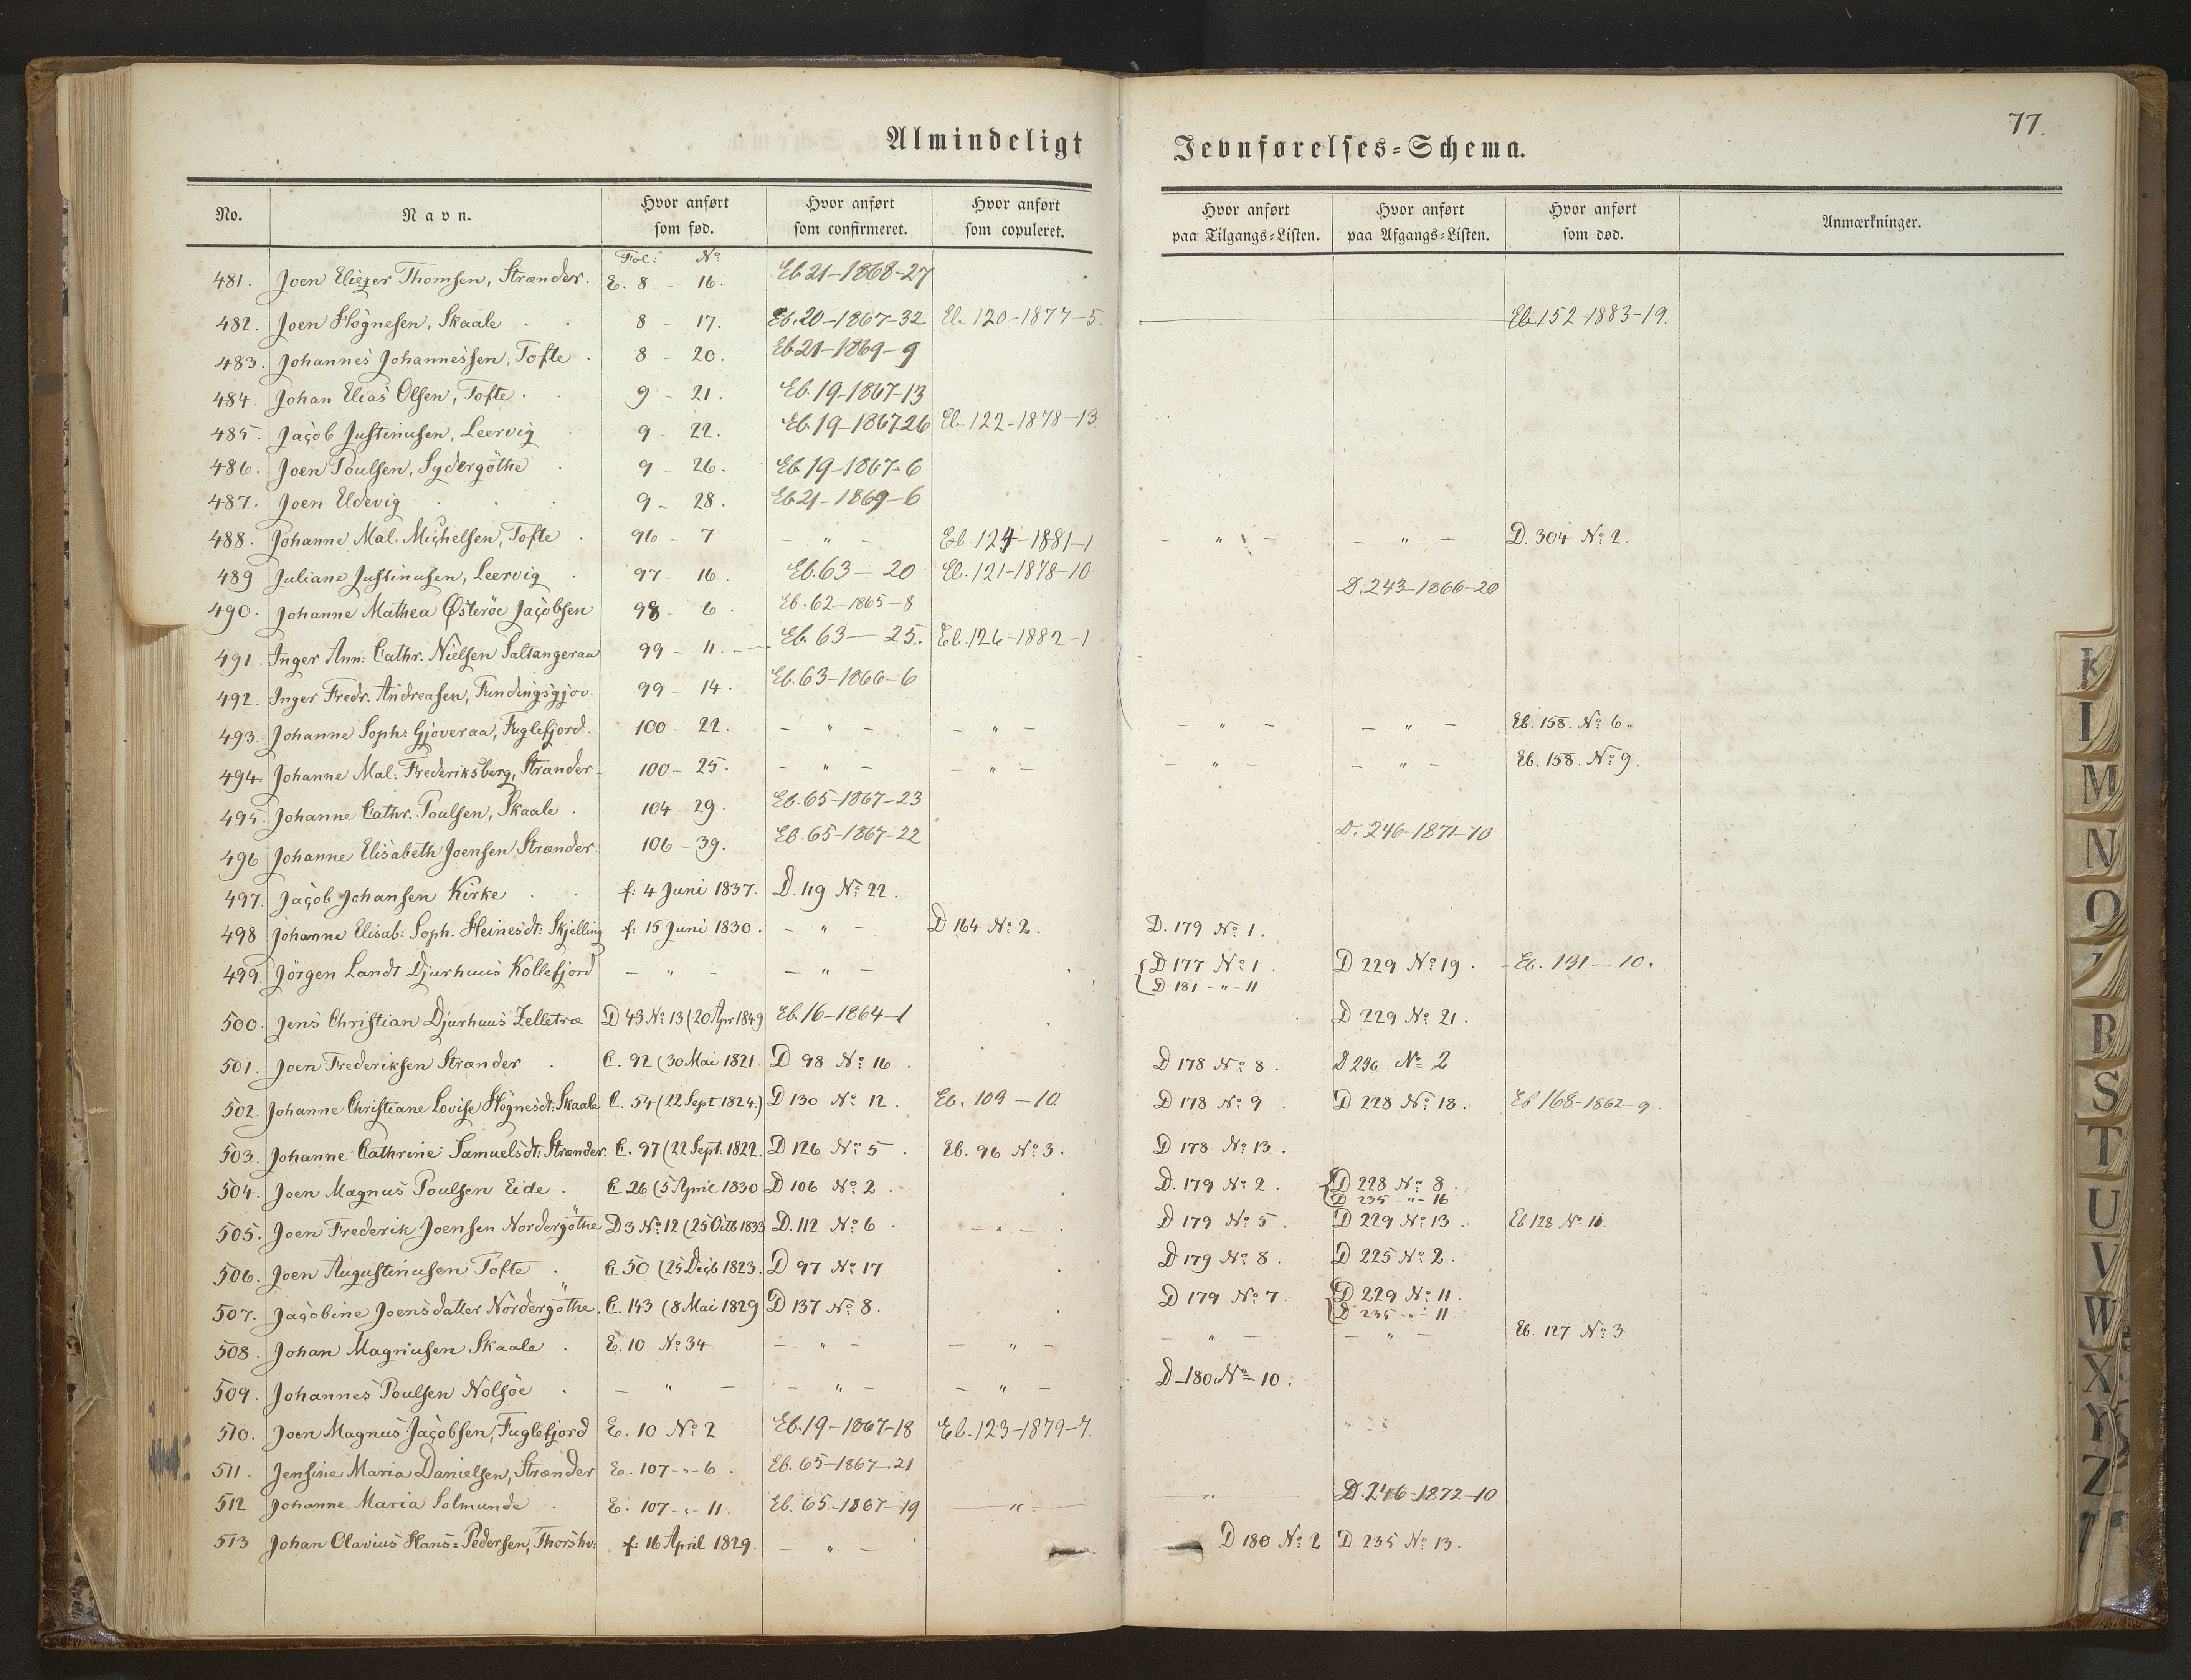 77.
Almindeligt Jevnførelses=Schema.
No. Navn. Hvor anført som fød. Hvor anført som confirmeret. Hvor anført som copuleret. Hvor anført paa Tilgangs=Listen. Hvor anført paa Afgangs=Listen. Hvor anført som død. Anmærkninger.
Fol: No
481. Joen Eliezer Thomsen, Strænder. E. 8 - 16. Eb 21-1868-27
482. Joen Högnesen, Skaale . . 8 - 17. Eb. 20-1867-32 Eb. 120-1877-5. Eb 152-1883-19.
483. Johannes Johannessen, Tofte . 8 - 20. Eb 21-1869-9
484. Johan Elias Olsen, Tofte . . 9 - 21. Eb. 19-1867-13
485. Jacob Justinusen, Leervig . 9 - 22. Eb. 19-1867 26 Eb. 122-1878-13
486. Joen Poulsen, Sydergöthe . 9 - 26. Eb 19-1867-6
487. Joen Eldevig . . . 9 - 28. Eb 21-1869-6
488. Johanne Mal. Michelsen, Tofte . 96 - 7 - " - Eb. 124-1881-1 - " - - " - D. 304 No 2.
489 Juliane Justinusen, Leervig . 97 - 16. Eb. 63 - 20 Eb. 121-1878-10
490. Johanne Mathea Østerøe Jacobsen 98 - 6. Eb. 62-1865-8 D. 243-1866-20
491. Inger Ann: Cathr. Nielsen Saltangeraa 99 - 11. - Eb. 63 - 25. Eb. 126-1882-1
492. Inger Fredr. Andreasen, Fundingsgjov. 99 - 14. Eb. 63-1866-6
493. Johanne Soph: Gjoveraa, Fuglefjord. 100 - 22. - " - - " - - " - - " - Eb. 158. No 6.
494. Johanne Mal: Frederiksberg, Strænder 100 - 25. - " - - " - - " - - " - Eb. 158. No 9.
495. Johanne Cathr. Poulsen, Skaale . 104 - 29. Eb. 65-1867-23
496 Johanne Elisabeth Joensen Strænder. 106 - 39. Eb. 65-1867-22 D. 246-1871-10
497. Jacob Johansen Kirke . . f: 4 Juni 1837. D. 119 No 22.
498 Johanne Elisab: Soph. Heinesdt: Skjelling f: 15 Juni 1830. - " - D 164 No 2. D. 179 No 1.
499. Jörgen Landt Djurhuus Kollefjord - " - - " - { D 177 No 1. D 229 No 19. Eb. 131 - 10.
D 181 - " - 11
500. Jens Christian Djurhuus Zelletræ D 43 No 13 (20 Apr 1849 Eb. 16-1864-1 D 229 No 21.
501. Joen Frederiksen Strænder . C. 92 (30 Mai 1821. D 98 No 16 . D 178 No 8. D 236 No 2
502. Johanne Christiane Lovise Högnesdt: Skaale C. 54 (22 Sept 1824.) D 130 No 12. Eb. 103 - 10. D 178 No 9 D 228 No 18. Eb 168-1862-9.
503. Johanne Cathrine Samuelsdt: Strænder. C. 97 (22 Sept. 1822. D 126 No 5 . Eb. 96 No 3. D 178 No 13.
504. Joen Magnus Poulsen Eide . C 26 (5 April 1830 D 106 No 2. D. 179 No 2. { D 228 No 8.
D 235 - " - 16
505. Joen Frederik Joensen Nordergöthe D 3 No 12 (25 Octb 1833 D. 112 No 6 . - " - D 179 No 5. D 229 No 13. Eb 128 No 11.
506. Joen Augustinusen Tofte . C 50 (25 Decb 1823. D 97 No 17 D 179 No 8. D 225 No 2.
507. Jacobine Joensdatter Nordergöthe. C. 143 (8 Mai 1829 D 137 No 8. D 179 No 7. { D 229 No 11.
D 235 - " - 11
508. Johan Magnusen Skaale . E. 10 No 34 - " - - " - - " - - " - Eb. 127 No 3
509. Johannes Poulsen Nolsöe . - " - - " - - " - D 180 No 10.
510. Joen Magnus Jacobsen, Fuglefjord E. 10 No 2 Eb. 19-1867-18 Eb. 123-1879-7.
511. Jensine Maria Danielsen, Strænder E. 107 - " - 6. Eb. 65-1867-21
512 Johanne Maria Solmunde . E. 107 - " - 11. Eb. 65-1867-19 - " - - " - D. 246-1872-10
513 Johan Clavius Hans=Pedersen, Thorshv: f: 16 April 1829. - " - D 180 No 2 D. 235 No 13.
K
I
M
N
O
R
S
T
U
V
W
X
Y
Z